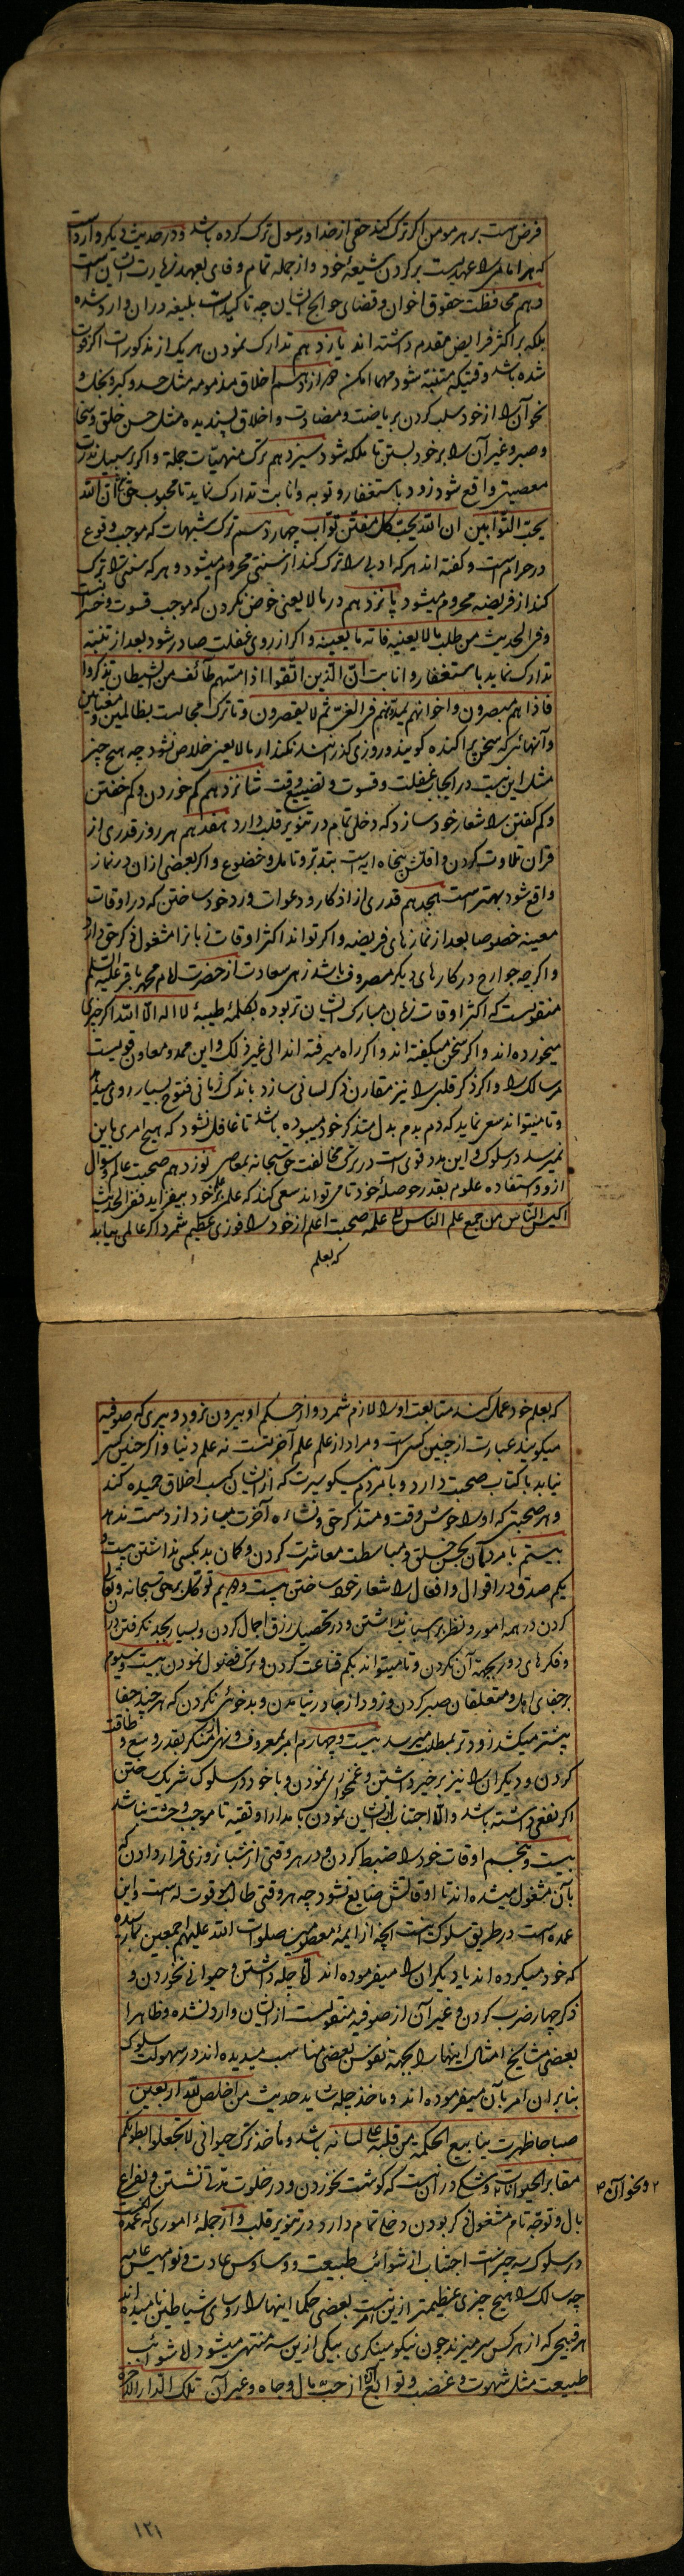 فرض است بر هر مومن اگر ترک کند حقی از خدا و رسول ترک کرده باشد و در حدیث دیگر وارد است
که هر امامی را عهدیست بر گردن شیعهٔ خود و از جمله تمام وفای بعهد زیارت ایشان است
دهم محافظت حقوق اخوان و قضای حوایج ایشان چه تاکیدات بلیغه در آن وارد شده
بلکه بر اکثر فرایض مقدم داشته اند یازدهم تدارک نمودن هر یک از مذکورات اگر فوت
شده باشد وقتیکه متنبه شود مهما امکن دوازدهم اخلاق مذمومه مثل حسد و کبر و بخل و
نحو آن را از خود سلب کردن بریاضت و مضادت و اخلاق پسندیده مثل حسن خلق و سخا
و صبر و غیر آن را بر خود بستن تا ملکه شود سیزدهم ترک منهیات جمله و اگر بر سبیل ندرت
معصیتی واقع شود زود باستغفار و توبه و انابت تدارک نماید تا محبوب حق باشد ان الله
یحب التوابین ان الله یحب کل مفتن تواب چهاردهم ترک شبهات که موجب وقوع
در حرام است و گفته اند هر که ادبی را ترک کند از سنتی محروم میشود و هر که سنتی را ترک
کند از فریضه محروم میشود پانزدهم در ما لا یعنی خوض نکردن که موجب قسوت و خسرانست
و فی الحدیث من طلب ما لا یعنیه فاته ما یعنیه و اگر از روی غفلت صادر شود بعد از تنبه
تدارک نماید باستغفار و انابت ان الذین اتقوا اذا مسهم طائف من الشیطان تذکروا
فاذا هم مبصرون و اخوانهم یمدونهم فی الغی ثم لا یقصرون و تا ترک مجالست بطالین و مغتابین
و آنهائی که سخن پراکنده گویند و روزی گذرانند نکند از ما لا یعنی خلاص نشود چه هیچ چیز
مثل این نیست در ایجاب غفلت و قسوت و تضییع وقت شانزدهم کم خوردن و کم خفتن
و کم گفتن را شعار خود سازد که دخلی تمام در تنویر قلب دارد هفدهم هر روز قدری از
قران تلاوت کردن و اقلش پنجاه آیه است بتدبر و تامل و خضوع و اگر بعضی از آن در نماز
واقع شود بهتر است هجدهم قدری از اذکار و دعوات ورد خود ساختن که در اوقات
معینه خصوصا بعد از نمازهای فریضه و اگر تواند اکثر اوقات زبانرا مشغول ذکر حق دارد
و اگر چه جوارح در کارهای دیگر مصروف باشد زهی سعادت از حضرت امام محمد باقر علیه السلام
منقولست که اکثر اوقات زبان مبارک ایشان تر بوده بکلمهٔ طیبهٔ لا اله الا الله اگر چیزی
میخورده اند و اگر سخن میگفته اند و اگر راه میرفته اند الی غیر ذلک و این ممد و معاون قویست
مر سالک را و اگر ذکر قلبی را نیز مقارن ذکر لسانی سازد باندک زمانی فتوح بسیار روی میدهد
و تا میتواند سعی نماید که دم بدم بدل متذکر خود میبوده باشد تا غافل نشود که هیچ امری باین
نمیرسد در سلوک و این مدد قوی است در ترک مخالفت حق سبحانه بمعاصی نوزدهم صحبت عالم و سوال
ازو و استفاده علوم بقدر حوصلهٔ خود تا می تواند سعی کند که علمی بر علم خود بیفزاید ففی الحدیث
اکیس الناس من جمع علم الناس الی علمه صحبت اعلم از خود را فوزی عظیم شمرد اگر عالمی بیابد
که بعلم
که بعلم خود عمل کند متابعت او را لازم شمرد و از حکم او بیرون نرود و پیری که صوفیه
میگویند عبارت از چنین کسی است و مراد از علم علم آخرتست نه علم دنیا و اگر چنین کسی
نیابد با کتاب صحبت دارد و با مردم نیکو سیرت که از ایشان کسب اخلاق حمیده کند
و هر صحبتی که او را خوش وقت و متذکر حق و نشاءه آخرت میسازد از دست ندهد
بیستم با مردمان بحسن خلق و مباسطت معاشرت کردن و گمان بد بکسی نداشتن بیست و
یکم صدق در اقوال و افعال را شعار خود ساختن بیست و دویم توکل بحق سبحانه و تعالی
کردن در همه امور و نظر بر اسباب نداشتن و در تحصیل رزق اجمال کردن و بسیار بجد نگرفتن در آن
و فکرهای دور بجهة آن نکردن و تا میتواند بکم قناعت کردن و ترک فضول نمودن بیست و سیوم
بر جفای اهل و متعلقان صبر کردن و زود از جا در نیامدن و بدخوئی نکردن که هر چند جفا
بیشتر میکشد زودتر بمطلب میرسد بیست و چهارم امر بمعروف و نهی از منکر بقدر وسع و طاقت
کردن و دیگران را نیز بر خیر داشتن و غمخواری نمودن و با خود در سلوک شریک ساختن
اگر نفعی داشته باشد و الا اجتناب از ایشان نمودن با مدارا و تقیه تا موجب وحشت نباشد
بیست و پنجم اوقات خود را ضبط کردن و در هر وقتی از شبانروزی قرار دادن که
بآن مشغول میشده اند تا اوقاتش ضایع نشود چه هر وقتی طالب موقوت له است و این
عمده است در طریق سلوک اینست انچه از ایمهٔ معصومین صلوات الله علیهم اجمعین بما رسیده
که خود میکرده اند یا دیگران را میفرموده اند اما چله داشتن و حیوانی نخوردن و
ذکر چهار ضرب کردن و غیر آن از صوفیه منقولست از ایشان وارد نشده و ظاهرا
بعضی مشایخ امثال اینها را بجهة نفوس بعضی مناسب میدیده اند در سهولت سلوک
بنابر آن امر بآن میفرموده اند و ماخذ چله شاید حدیث من اخلص لله اربعین
صباحا ظهرت ینابیع الحکمة من قلبه علی لسانه باشد و ماخذ ترک حیوانی لا تجعلوا بطونکم
مقابر الحیوانات و شکی در آن نیست که گوشت نخوردن و در خلوت مدتی نشستن و بفراغ
۲ و نحو آن ۳
بال و توجه تام مشغول ذکر بودن دخلی تمام دارد در تنویر قلب و از جملهٔ اموری که عمده است
در سلوک سه چیز است اجتناب از شوائب طبیعت و وساوس عادت و نوامیس عامه
چه سالک را هیچ چیزی عظیمتر ازین نیست بعضی حکما اینها را روسای شیاطین نامیده اند
هر قبیحی که از هر کس سر میزند چون نیکو مینگری بیکی ازین سه منتهی میشود اما شوائب
طبیعت مثل شهوت و غضب و توابع آن از حب مال و جاه و غیر آن تلک الدار الآخرة
۱۲۱